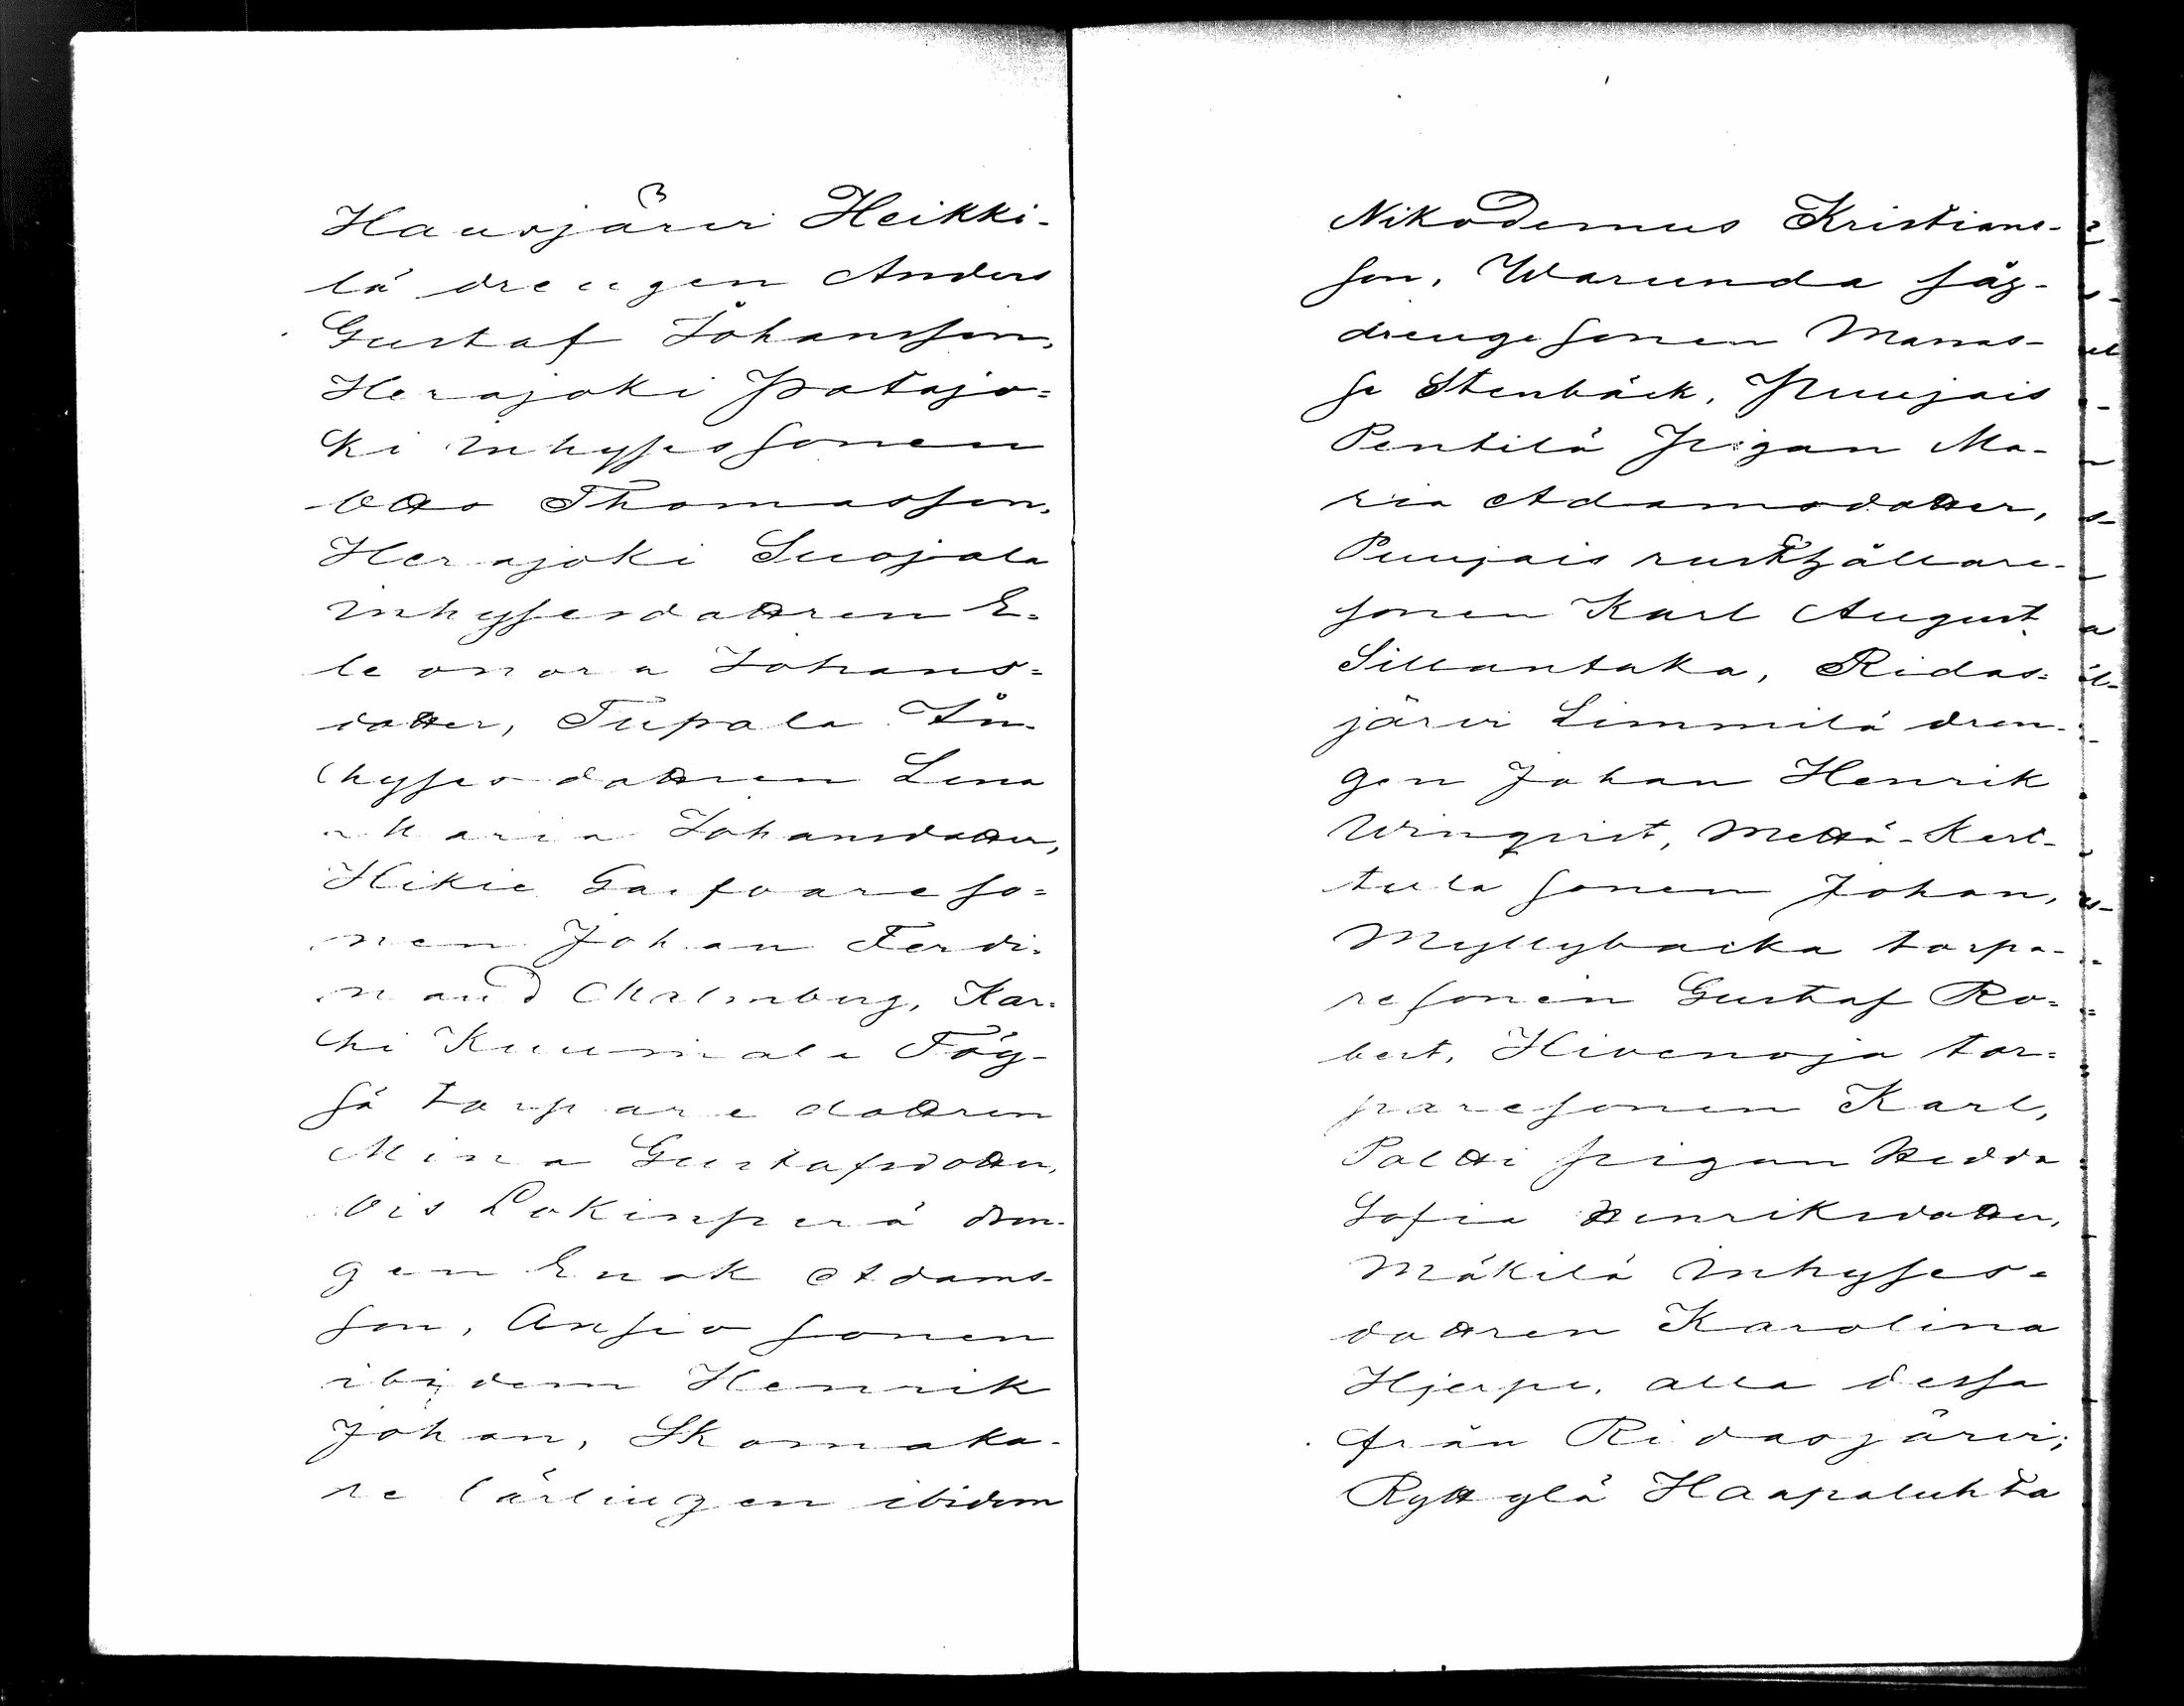 Hausjärvi Heikki-
lä drengen Anders
Gustaf Johansson,
Herajoki Patajo=
ki inhysessonen
Otto Thomasson,
Herajoki Suojala
inhysesdottren E=
leonora Johans=
dotter, Tupala In-
hysesdottren Lena
Maria Johansdotter,
Hikie Garfvareso=
nen Johan Ferdi=
nand Malmberg, Kar=
hi Kuusniala Tög-
så torparedottren
Mina Gustafsdotter,
Ois Lokinperä dren-
gen Enok Adams-
son, Ansio sonen
ibidem Henrik
Johan, Skomaka-
re lärlingen ibidem
Nikodemus Kristians-
son, Warunda såg-
drengesonen Manas-
se Stenbäck, Puujais
Pentilä Pigan Ma-
ria Adamsdotter,
Puujais rusthållare-
sonen Karl August
Sillantaka, Ridas=
järvi Limmilä dren-
gen Johan Henrik
Winqvist, Mettä-Kert-
tula sonen Johan,
Myllybacka torpa-
resonen Gustaf Ro=
bert, Hivenoja tor=
paresonen Karl,
Paltti pigan Hedda
Sofia Henriksdotter,
Mäkilä inhyses=
dottren Karolina
Hjerpe, alla dessa
från Ridasjärvi;
Ryttylä Haapaluhta